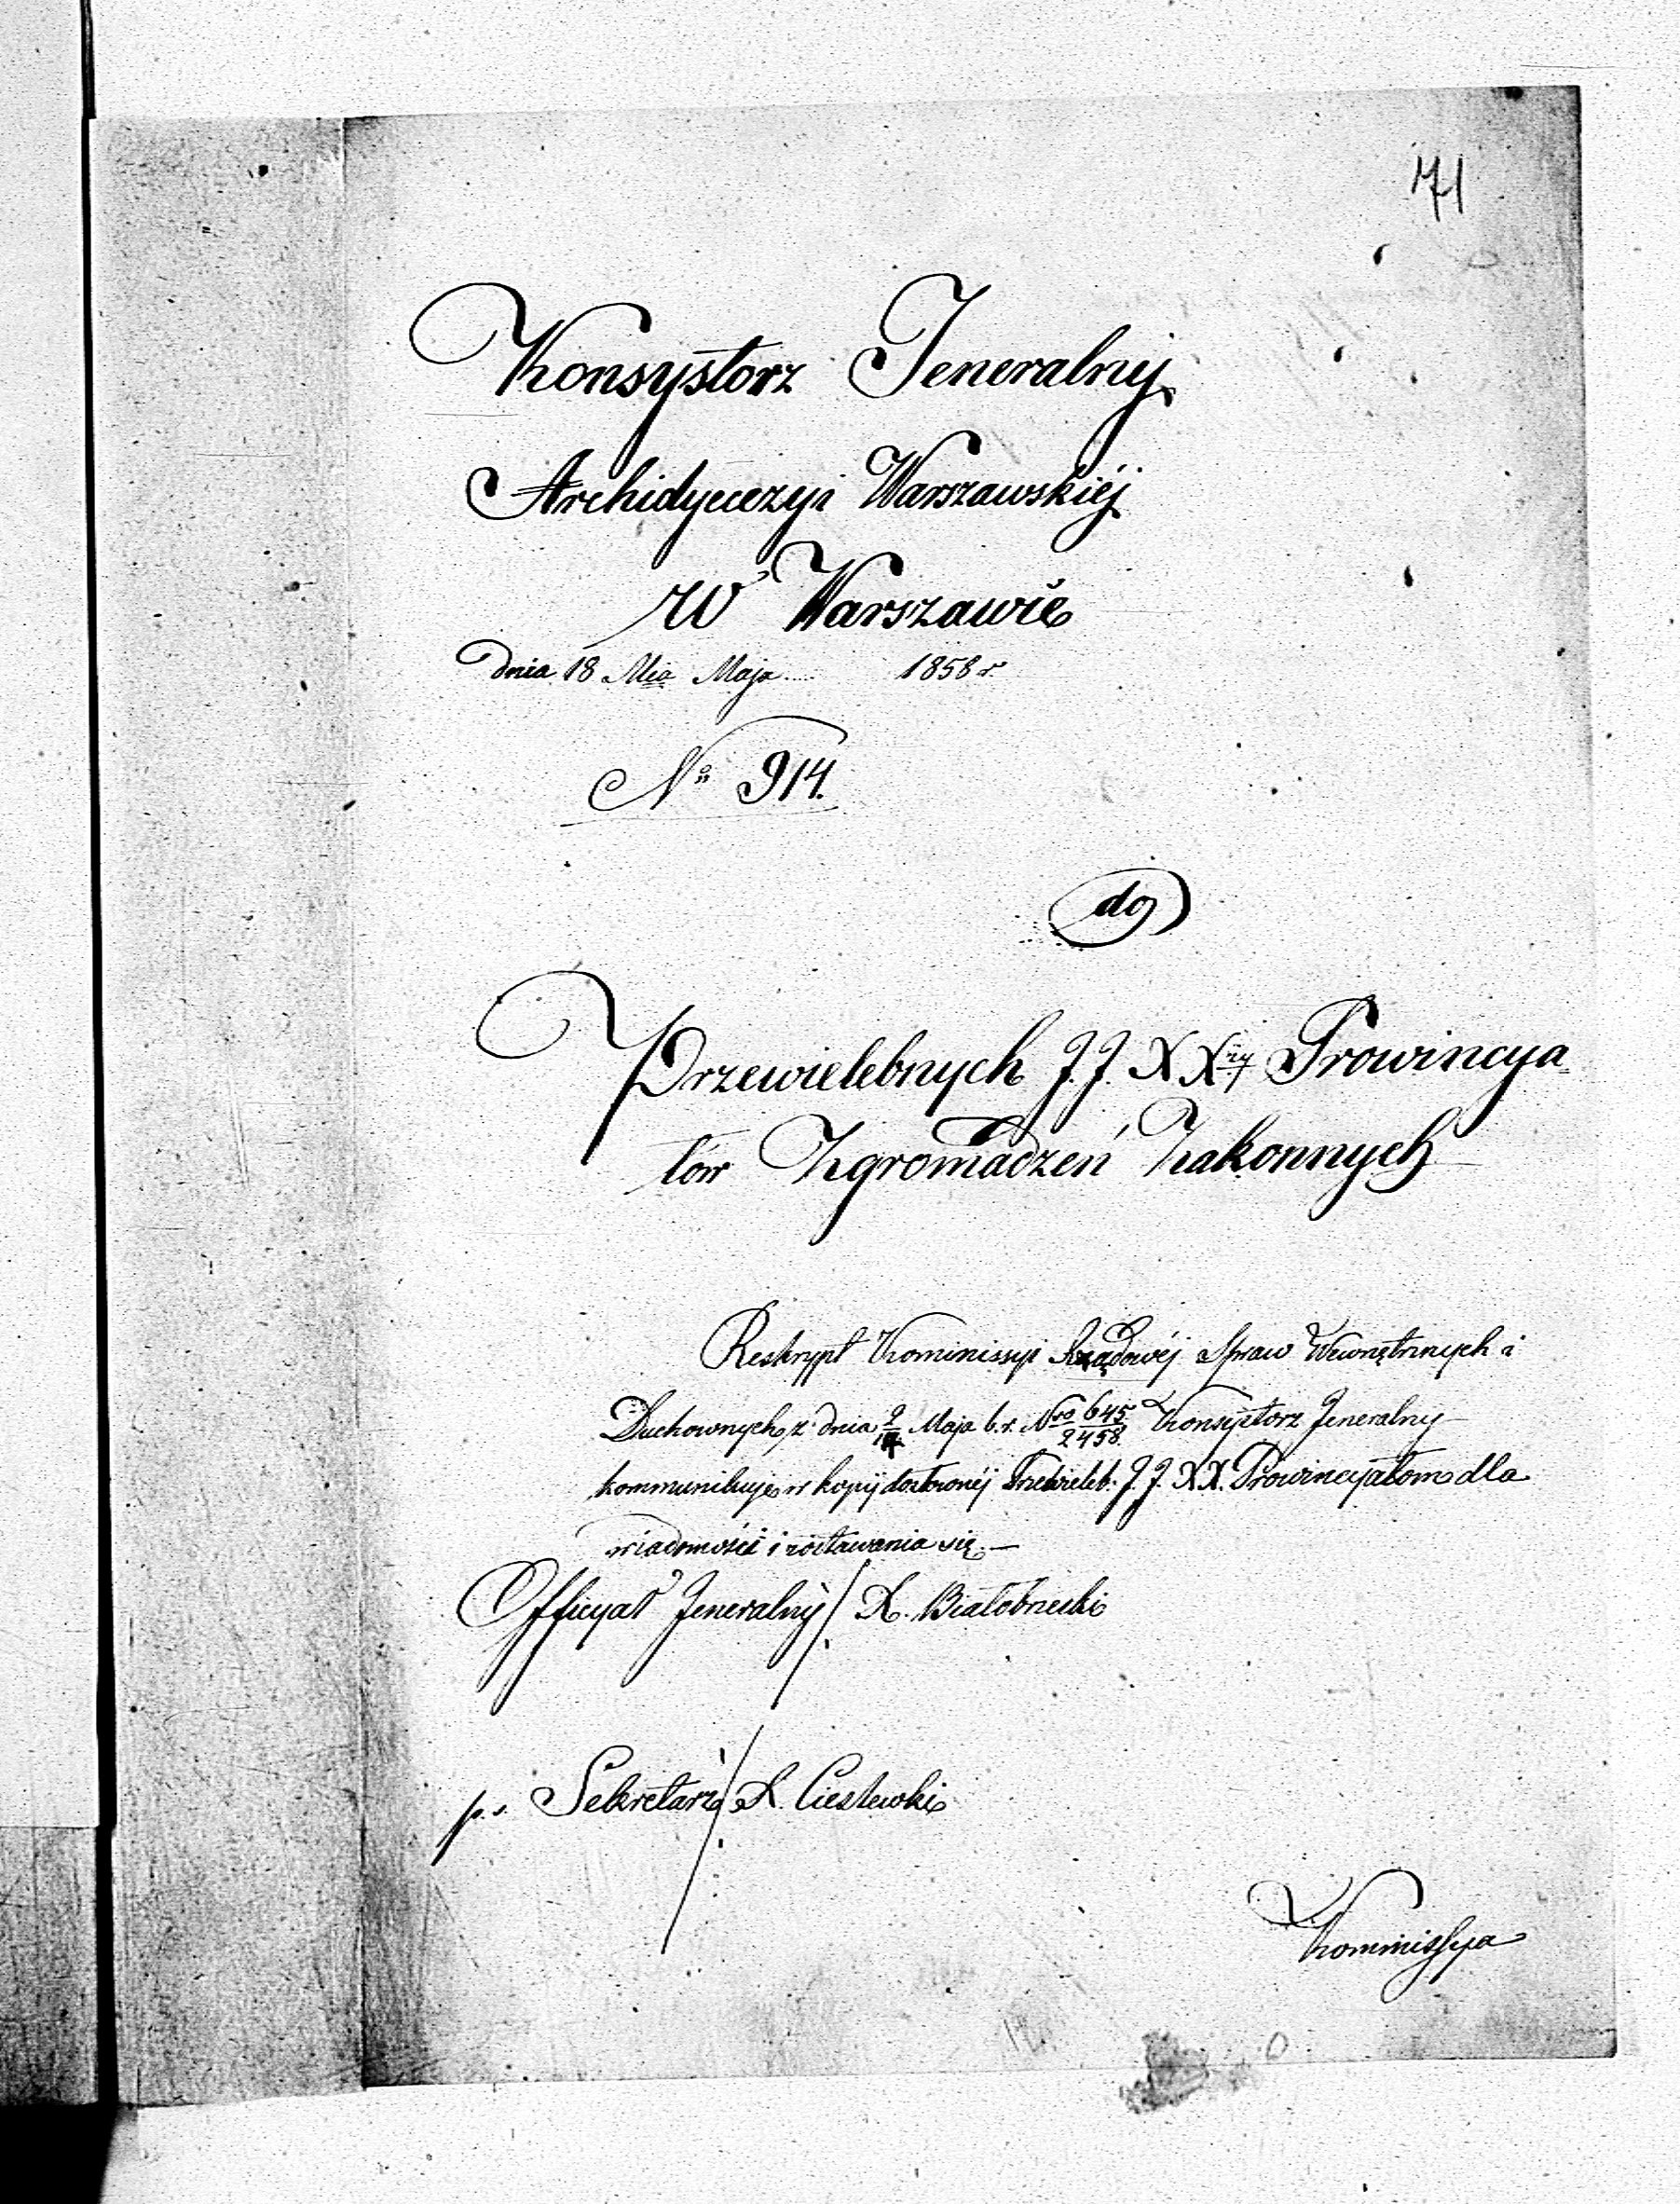 171
Konsystorz Jeneralny
Archidyecezyi Warszawskiéj
W Warszawie
dnia 18 Mca Maja 1858 r.
No 914.
do
Przewielebnych J.J. XXży Prowincya-
łów Zgromadzeń Zakonnych
Reskrypt Kommissyi Rządowéj Spraw Wewnętrznych i
Duchownych z dnia 2/14 Maja b.r. Nro 645/2458 Konsystorz Jeneralny
kommunikuje w kopij dosłownéj Przewieleb. J.J. XX. Prowincyałom dla
wiadomości i stosowania się. —
Officyał Jeneralny / X. Białobrzeski
p.o. Sekretarz / X. Cieslewski
Kommissya